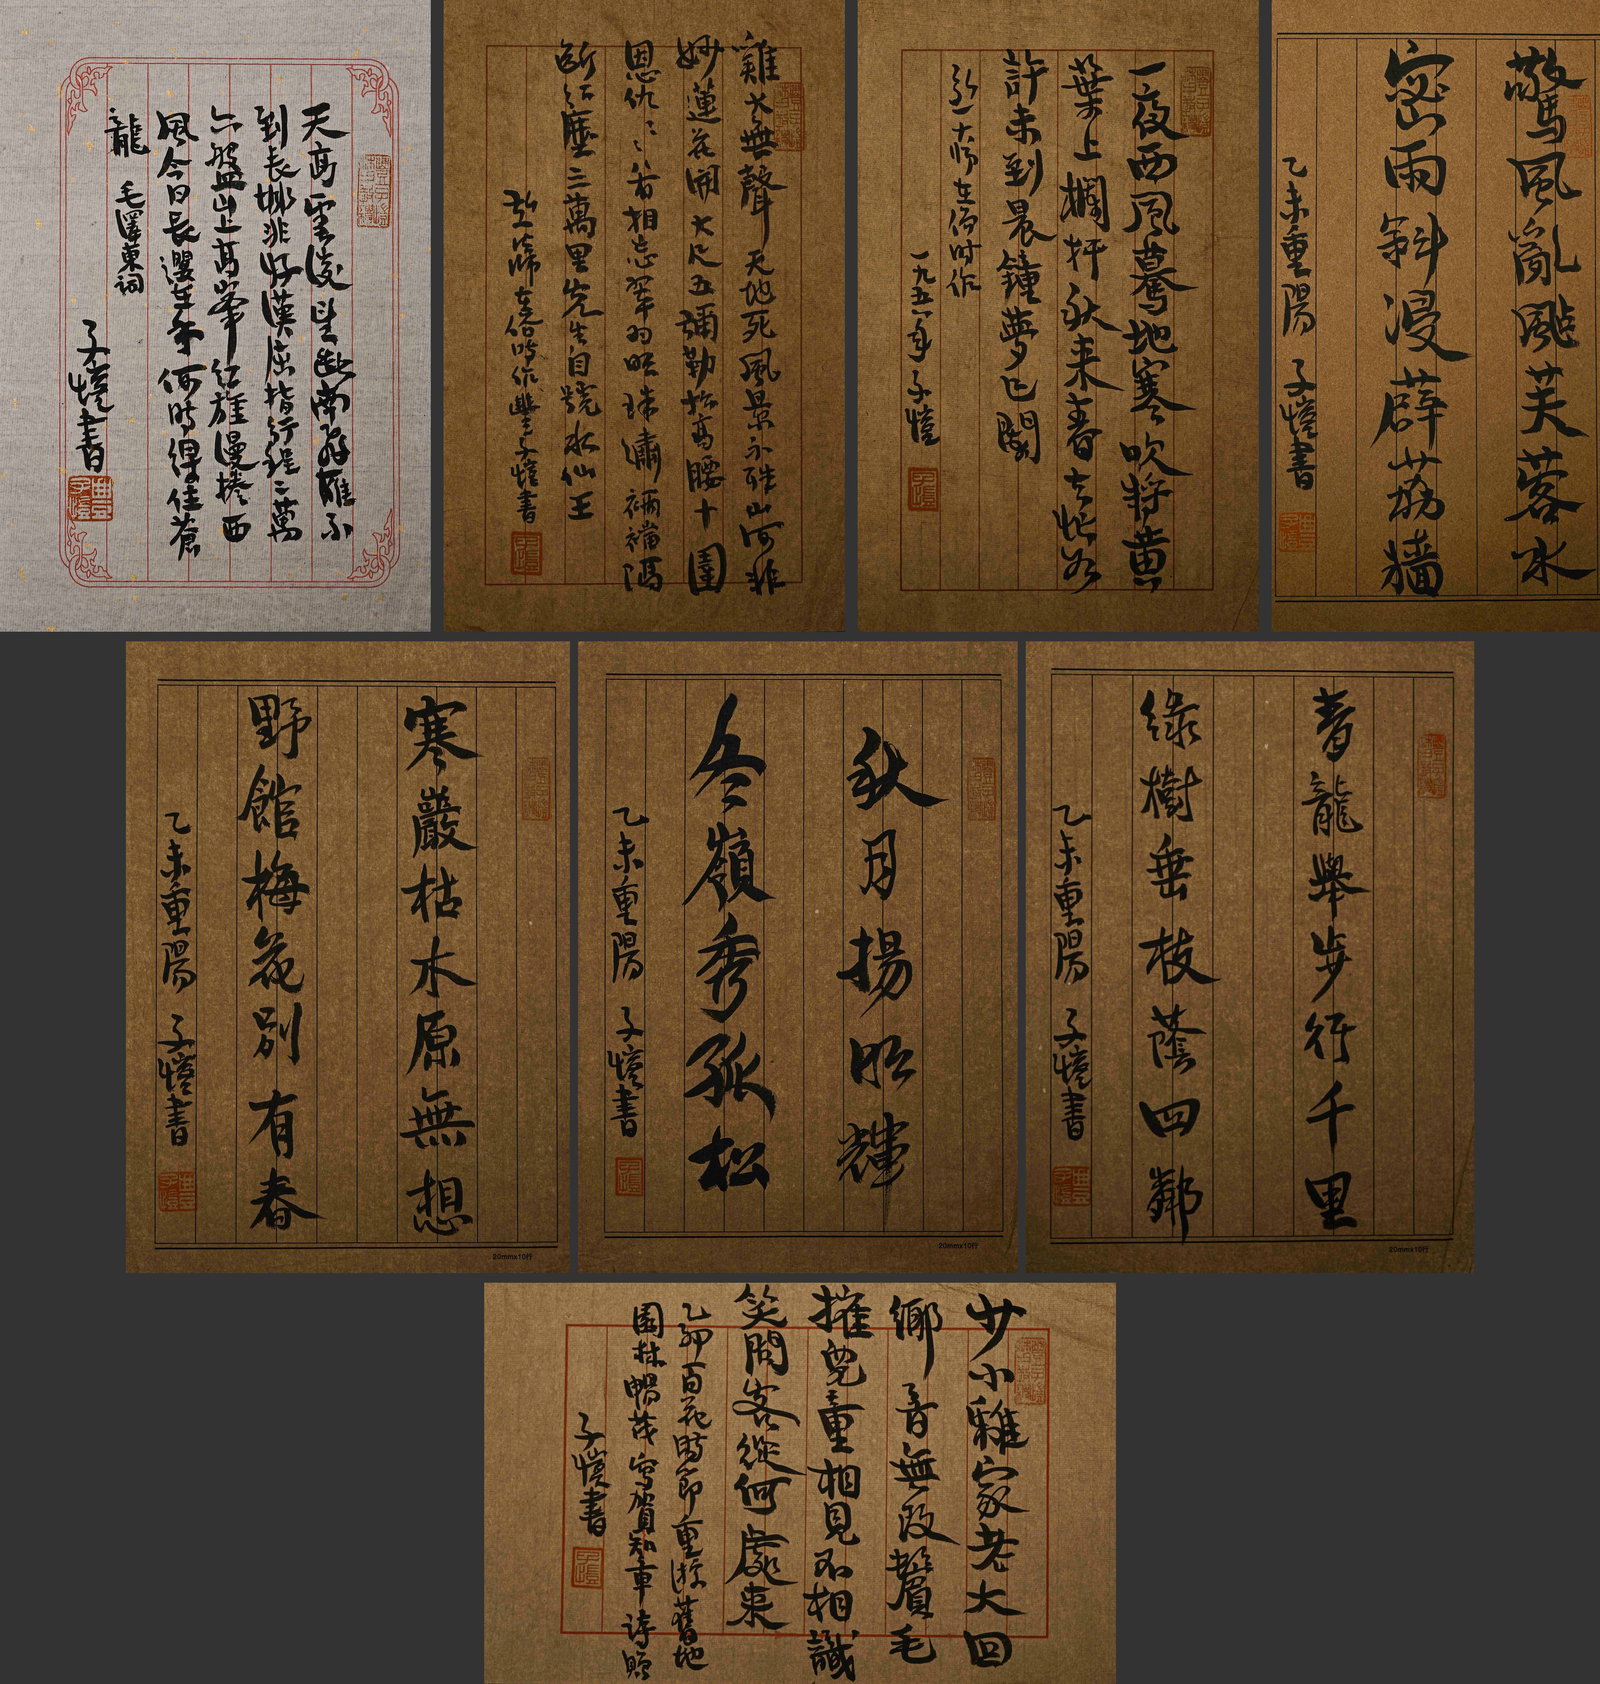 天高雲淡望斷南飛雁不
到長城非好漢屈指行程二萬
六盤山上高峰紅旗漫捲西
風今日長纓在手何時縛住蒼
龍 毛澤東詞
子愷書
豐子愷
雞犬無聲天地死風景不殊山河非
妙蓮花開大尺五彌勒松高腰十圍
恩仇〻〻若相忘翠羽明珠繡裲襠隔
斷紅塵三萬里先生自號水仙王
弘一法師在俗時作豐子愷書
一夜西風驀地寒吹將黃
葉上欄杆秋來春去忙如
許未到晨鐘夢已闌
弘一大師在俗時作
一九五一年 子愷
驚風亂颭芙蓉水
密雨斜浸薜荔牆
乙未重陽 子愷書
寒巖枯木原無想
野館梅花別有春
乙未重陽 子愷書
20mmx10行
秋月揚明輝
冬嶺秀孤松
乙未重陽 子愷書
20mmx10行
青龍舉步行千里
綠樹垂枝蔭四鄰
乙未重陽 子愷書
20mmx10行
少小離家老大回
鄉音無改鬢毛
摧兒童相見不相識
笑問客從何處來
乙卯百花時節重游舊地
園林暢茂寫賀知章詩贈
子愷書